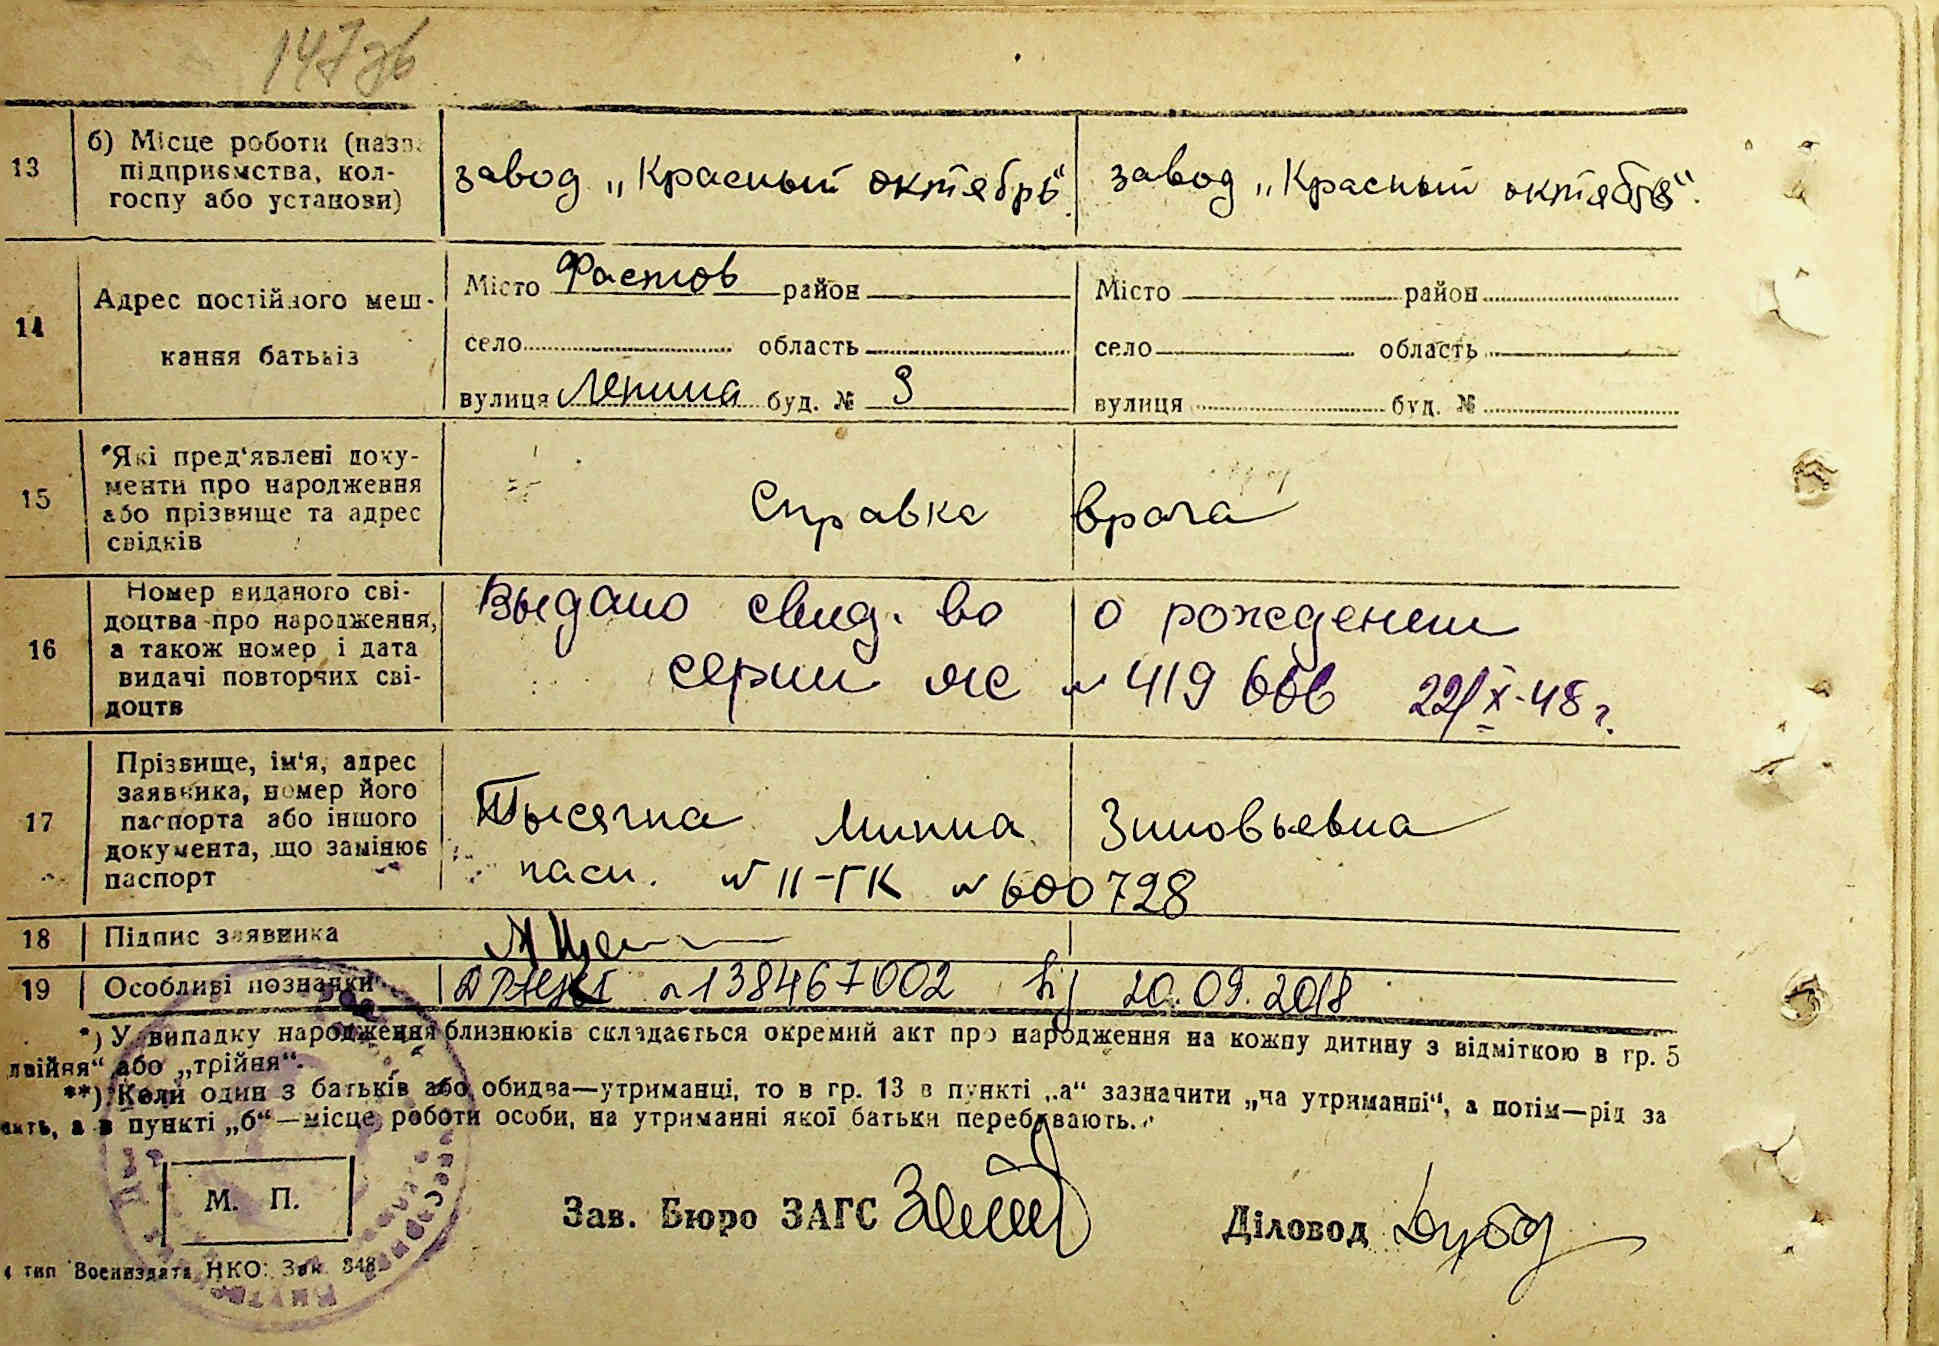 147 зв
13
б) Місце роботи (назва
підприємства, кол-
госпу або установи)
завод „Красный октябрь“
завод „Красный октябрь“.
14
Адрес постійного меш-
кання батьків
Місто Фастов район
село область
вулиця Ленина буд. № 9
Місто район
село область
вулиця буд. №
15
*Які пред‘явлені доку-
менти про народження
або прізвище та адрес
свідків
Справка врача
16
Номер виданого сві-
доцтва про народження,
а також номер і дата
видачі повторних сві-
доцтв
Выдано свид. во о рождении
серии № 419 666 22/X-48 г.
17
Прізвище, ім‘я, адрес
заявника, номер його
паспорта або іншого
документа, що замінює
паспорт
Тысячна Минна Зиновьевна
пасп. № II-ГК № 600728
18
Підпис заявника
19
Особливі позначки
№ 138467002 від 20.09.2018
*) У випадку народження близнюків складається окремий акт про народження на кожну дитину з відміткою в гр. 5
двійня“ або „трійня“.
**) Коли один з батьків або обидва—утриманці, то в гр. 13 в пункті „а“ зазначити „на утриманні“, а потім—рід за
нять, а в пункті „б“—місце роботи особи, на утриманні якої батьки перебувають.
М. П.
Зав. Бюро ЗАГС
Діловод
4 тип Воениздата НКО. Зак. 848